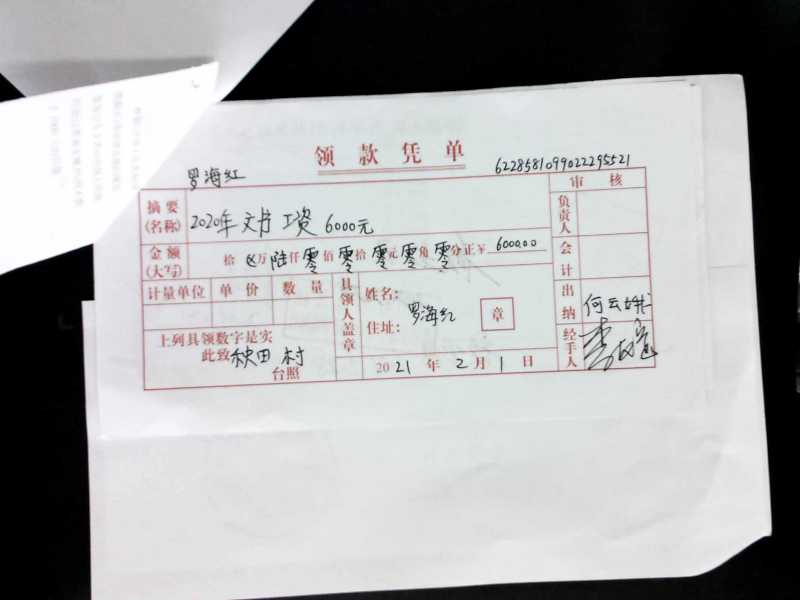 领款凭单
罗海红
6228581099022295521
摘要(名称) 2020年文书工资6000元
金额(大写) 拾 万陆仟零佰零拾零元零角零分正¥6000.00
计量单位 单价 数量
具领人盖章
姓名:
罗海红
住址:
章
上列具领数字是实
此致 秧田村
台照
2021年2月1日
审核
负责人
会计
出纳 何云
经手人